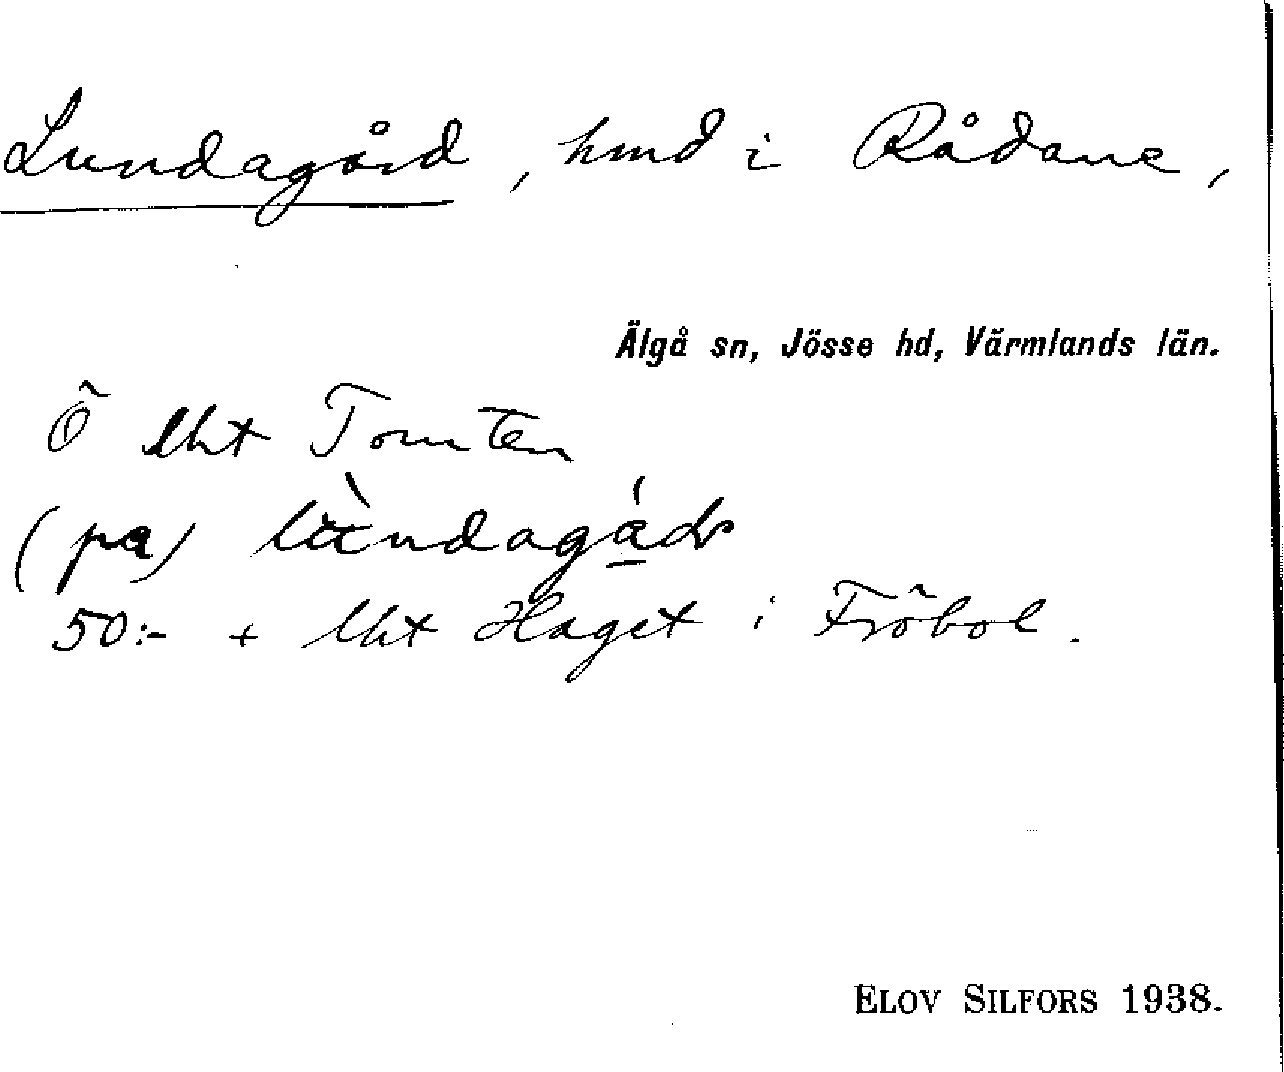 Lundagård, hmd i Rådane,
Älgå sn, Jösse hd, Värmlands län.
Ö lht Tomten
(pa) lundagádr
50:- + lht Haget i Fröbol.
ELOV SILFORS 1938.